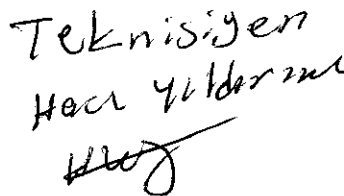 Teknisiyen
Hacı Yıldırım